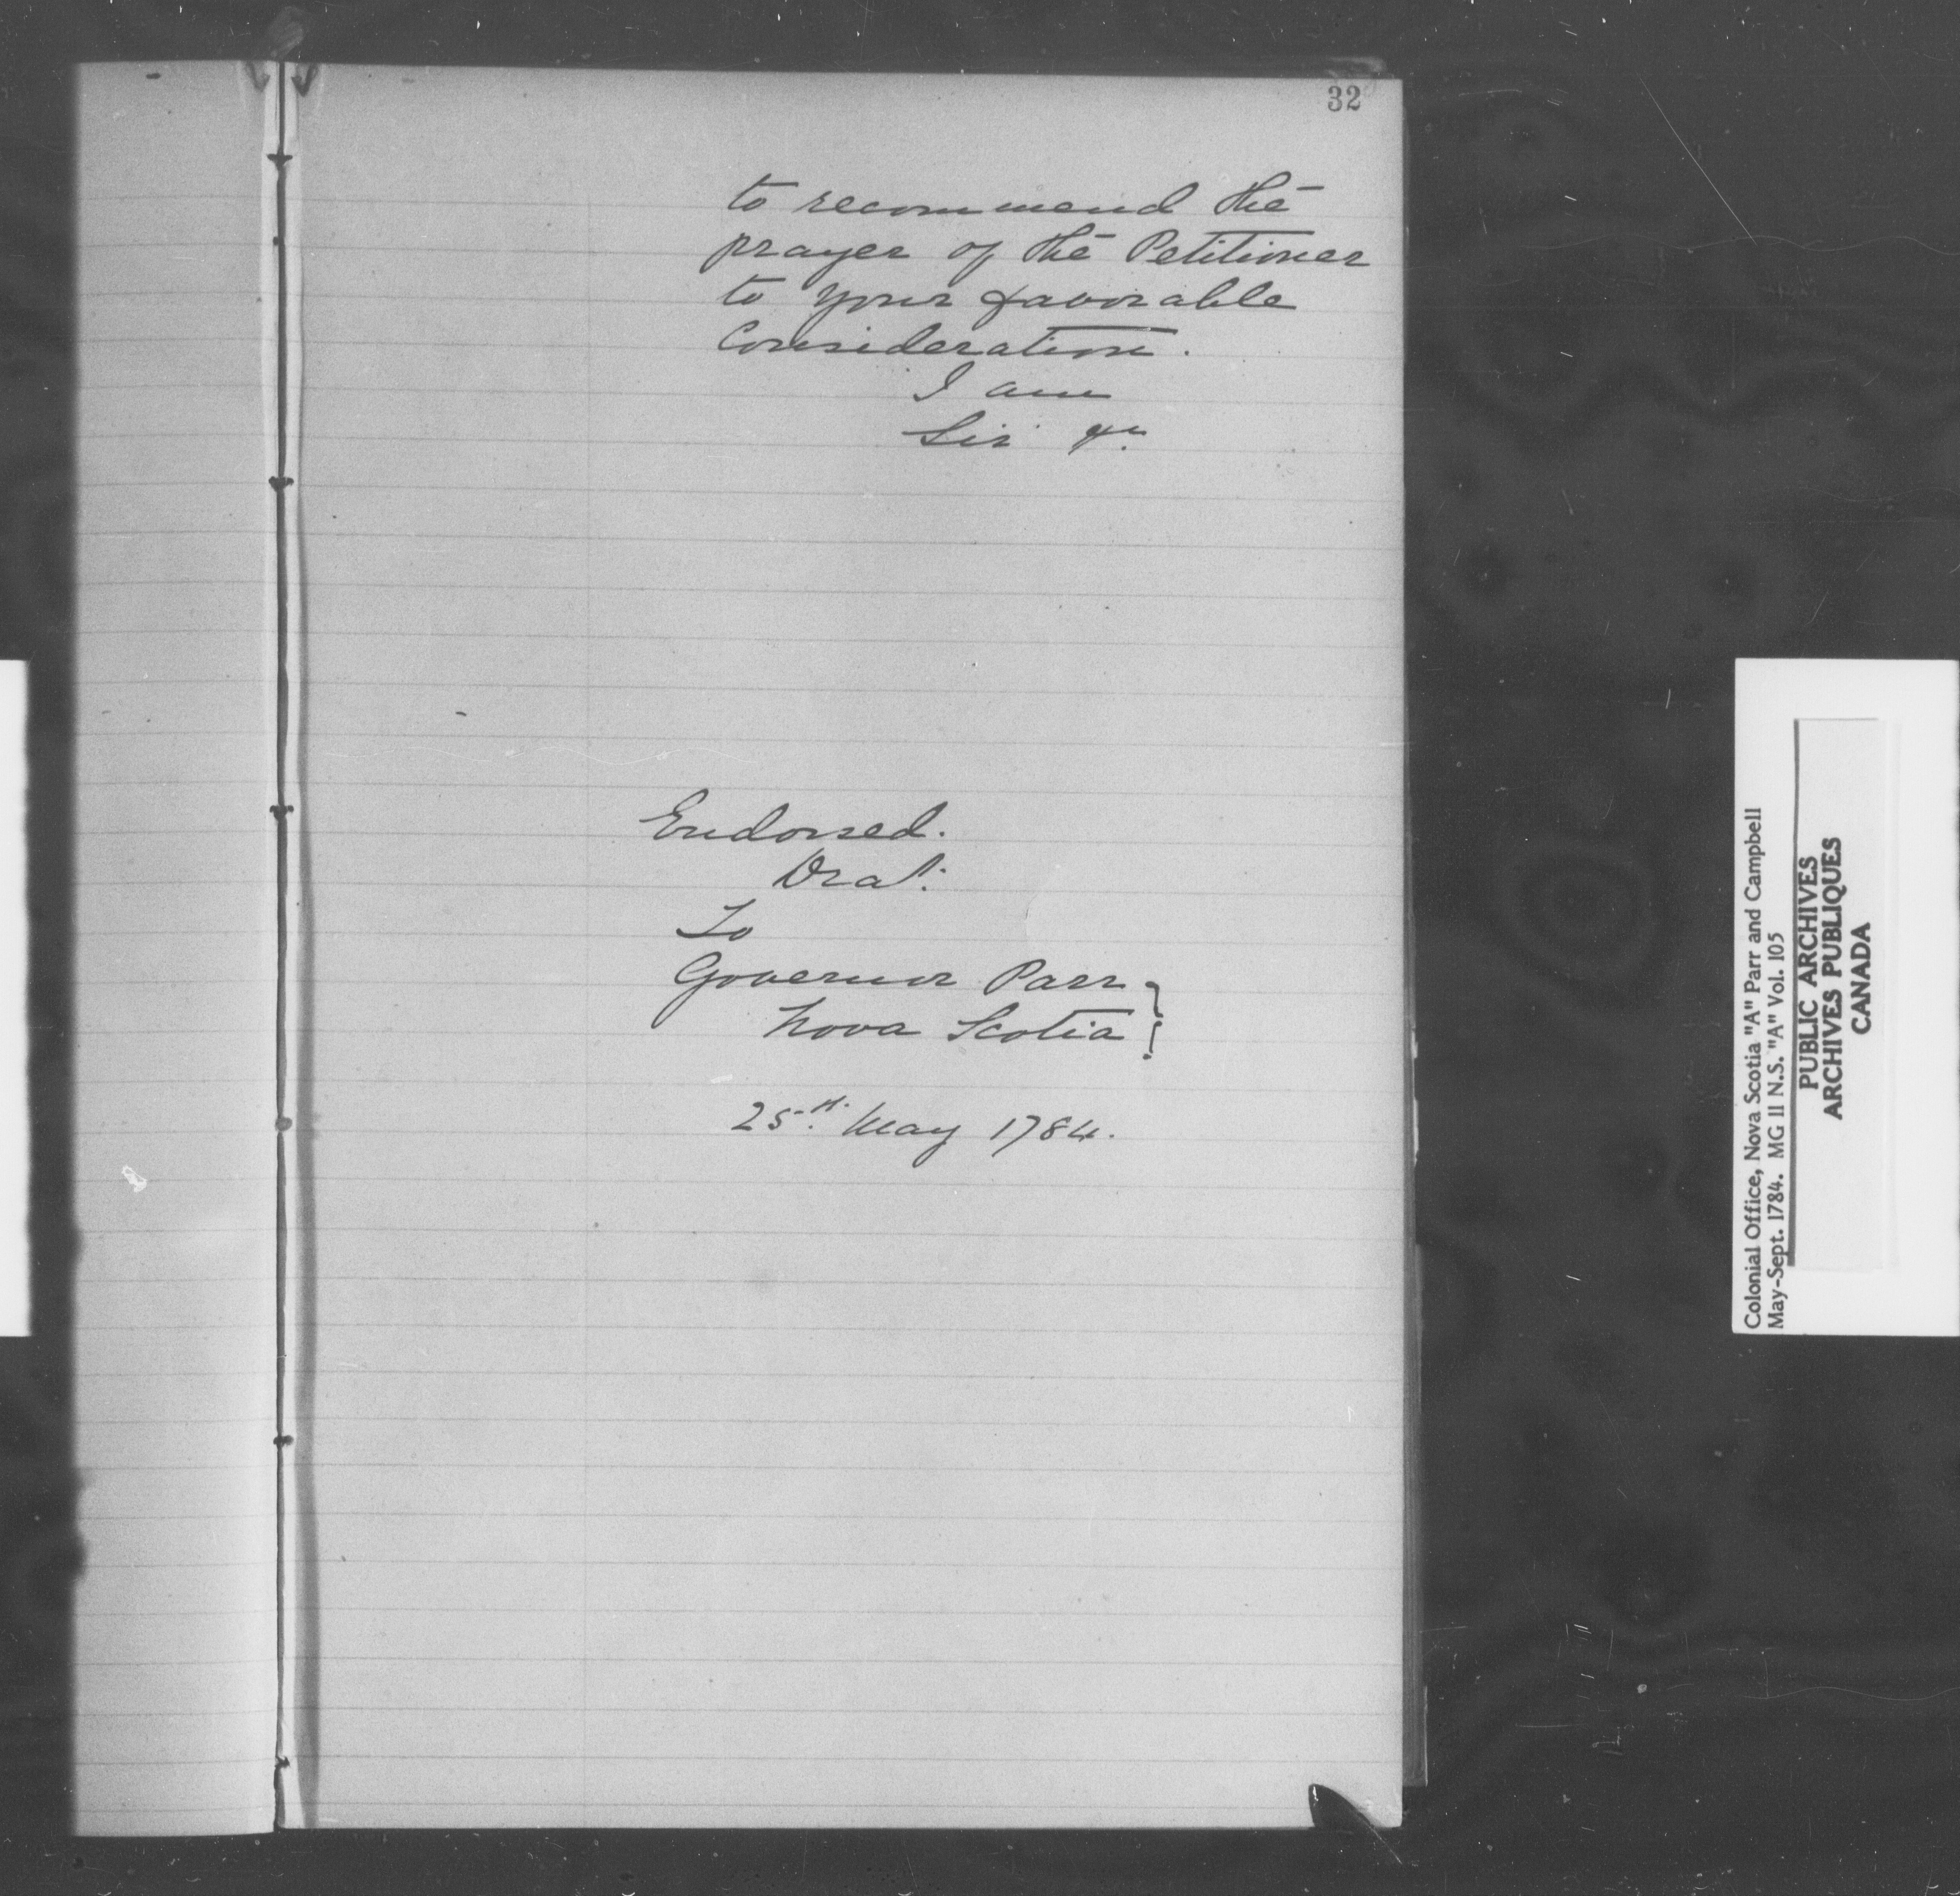 32
to recommend the
prayer of the Petitioner
to your favorable
Consideration.
I am
Sir &c.
Endorsed.
Drat.
To
Governor Parr
Nova Scotia
25th May 1784.
Colonial Office, Nova Scotia "A" Parr and Campbell
May-Sept. 1784. MG 11 N.S. "A" Vol. 105
PUBLIC ARCHIVES
ARCHIVES PUBLIQUES
CANADA